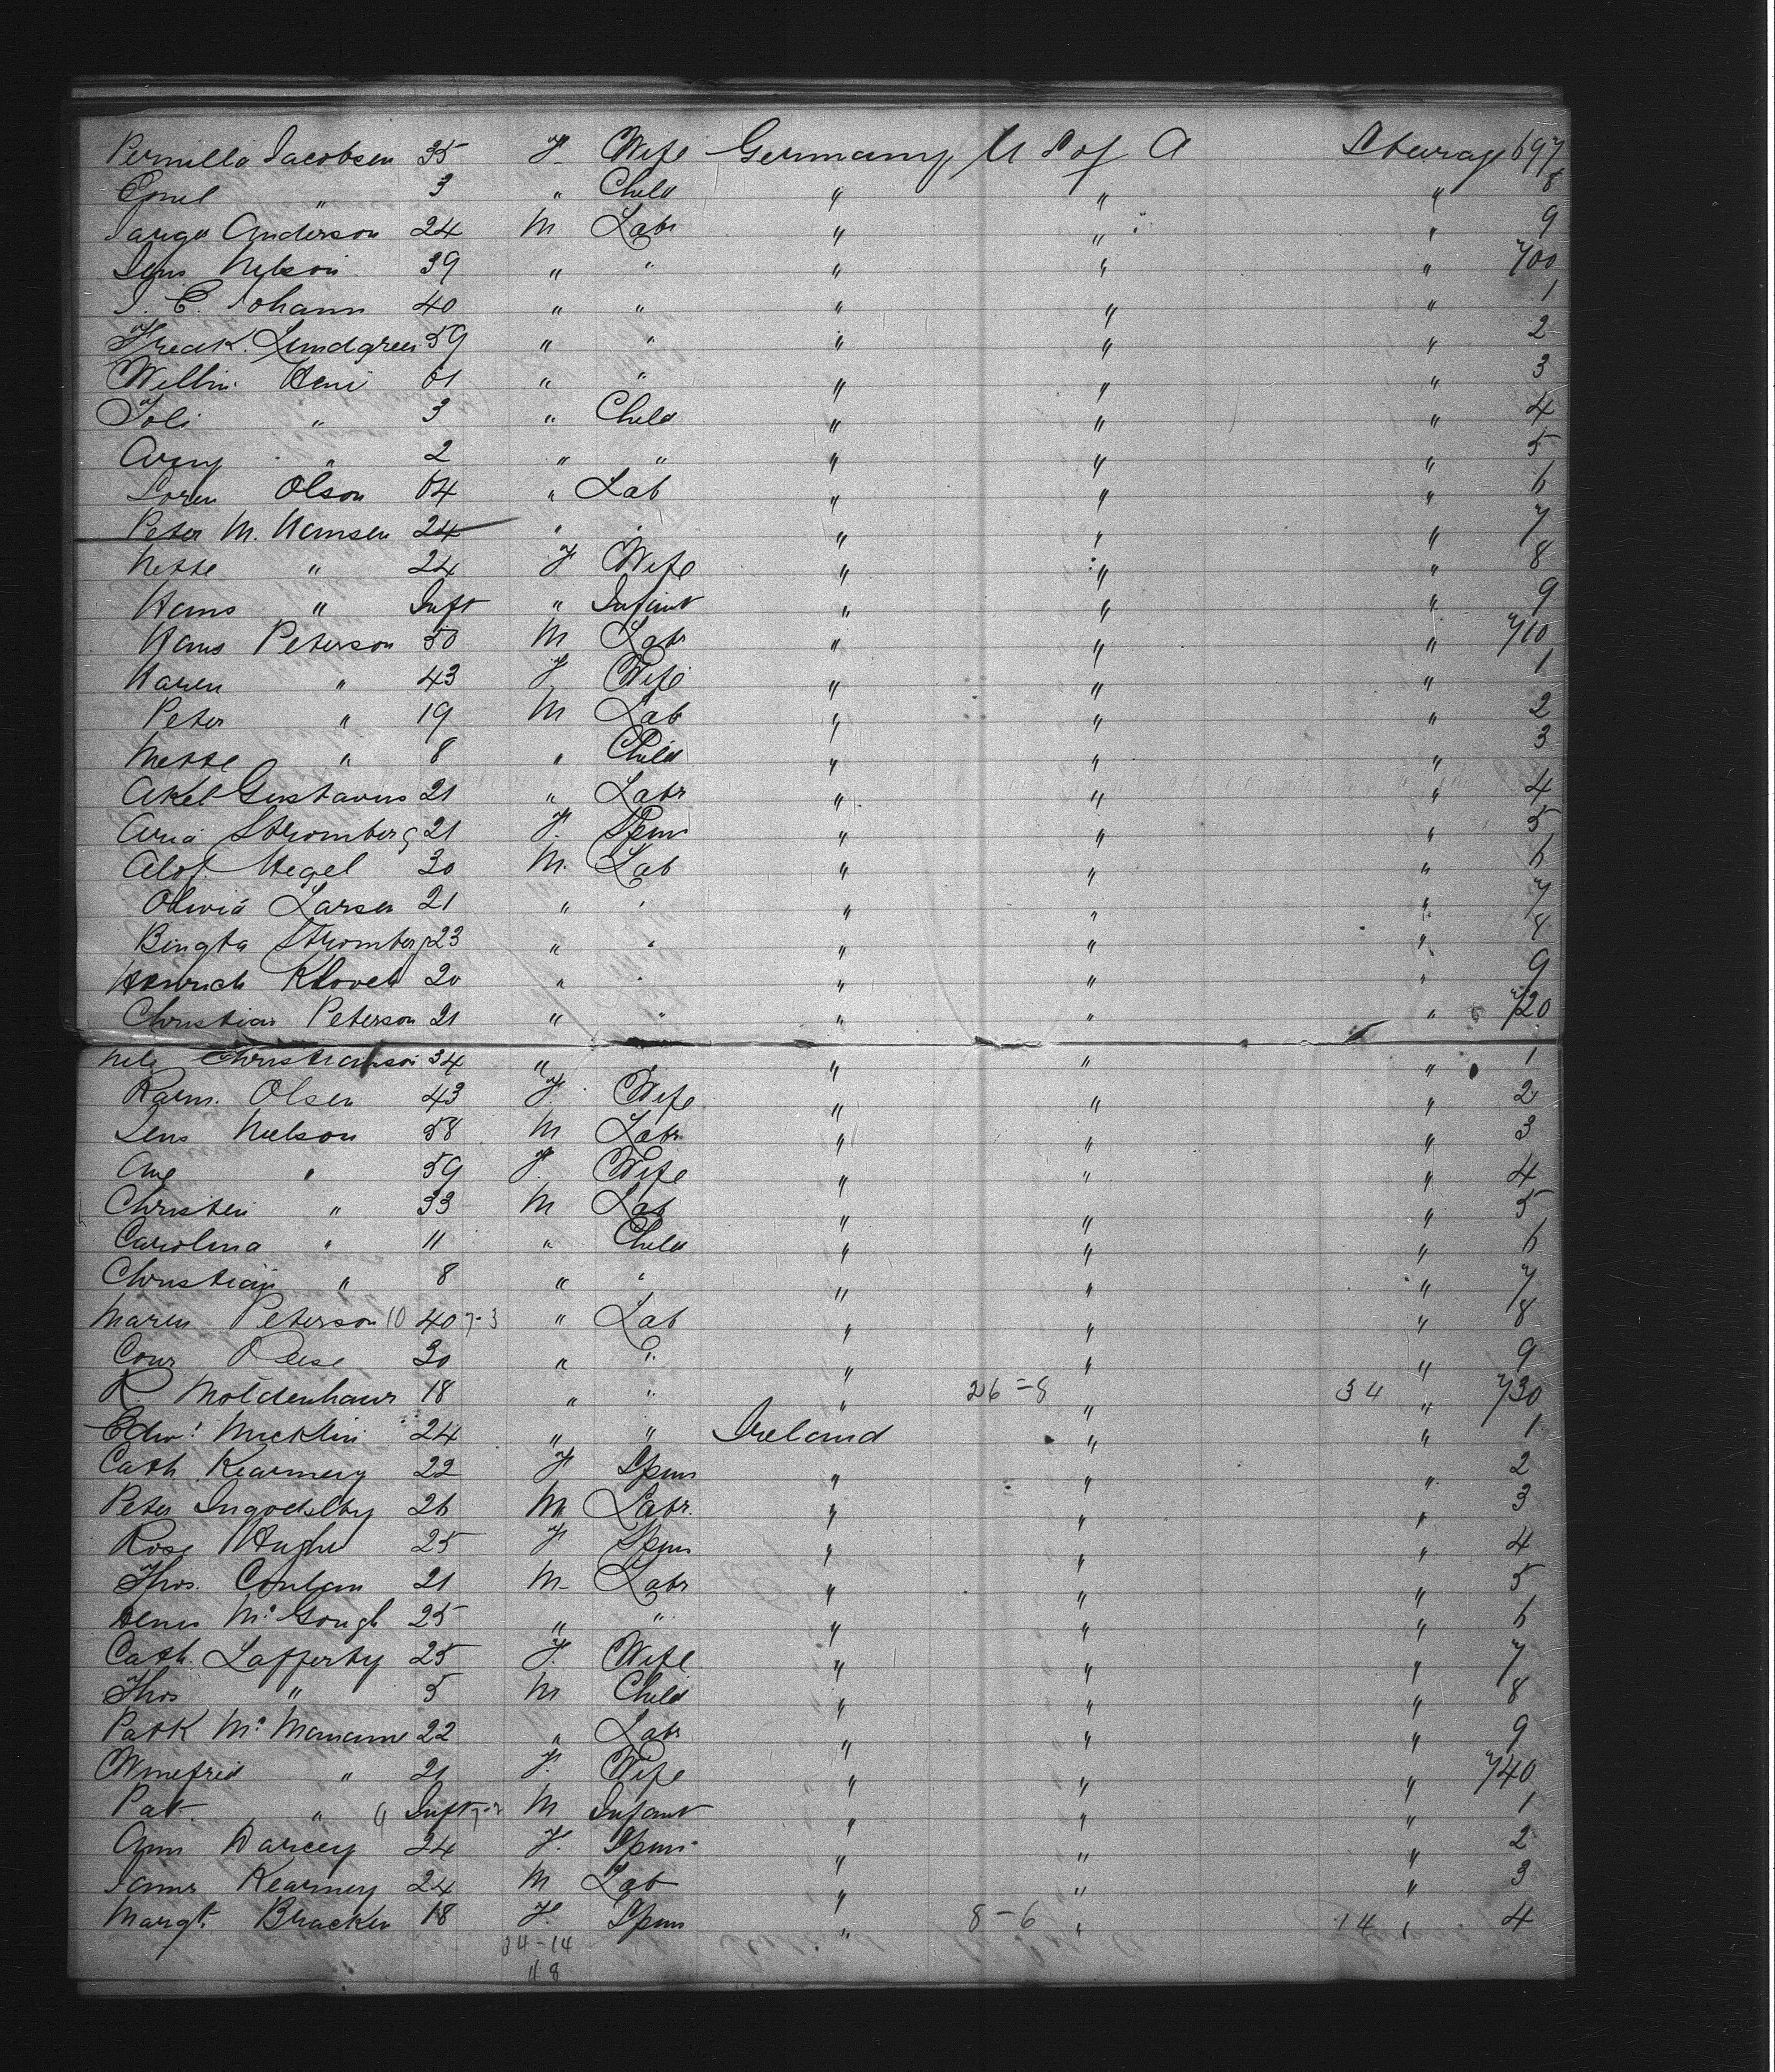 Pernilla Jacobsen 35 F Wife Germany U S of A Steerage 697
Emil " 3 " Child " " " 8
Anderson 24 M Labr " " " 9
Jens Nelson 39 " " " " " 700
J. C. Johann 40 " " " " " 1
Fredk. Lundgreen 59 " " " " " 2
Willm. 61 " " " " " 3
" 3 " Child " " " 4
" 2 " " " " " 5
Soren Olson 64 " Lab " " " 6
Peter M. Hansen 24 " " " " " 7
Nette " 24 F Wife " " " 8
Hans " Inft " Infant " " " 9
Hans Peterson 50 M Labr " " " 710
Karen " 43 F Wife " " " 1
Peter " 19 M Lab " " " 2
Mette " 8 " Child " " " 3
Akel Gustavus 21 " Labr " " " 4
Stromberg 21 F. Spins " " " 5
Alof Hegel 30 M. Lab " " " 6
Olivia Larsen 21 " " " " " 7
Bingta Stromberg 23 " " " " " 8
Heinrich 20 " " " " " 9
Christian Peterson 21 " " " " " 720
Nels Christianson 34 " " " " " 1
Olsen 43 F. Wife " " " 2
Jens Nielson 58 M Labr " " " 3
Ane " 59 F. Wife " " " 4
Christen " 33 M Lab " " " 5
Carolina " 11 " Child " " " 6
Christian " 8 " " " " " 7
Maren Peterson 10 40 7-3 " Lab " " " 8
30 " " " " " 9
R. Moldenhawr 18 " " " 26=8 " 34 " 730
Edwd. Micklin 24 " " Ireland " " 1
Cath. Kearney 22 F Spins " " " 2
Peter Ingoldsby 26 M Labr. " " " 3
Rose Hughes 25 F Spins " " " 4
Thos. Conlan 21 M Labr " " " 5
McGough 25 " " " " " 6
Cath. Lafferty 25 F. Wife " " " 7
Thos " 5 M Child " " " 8
Patk McManame 22 " Labr " " " 9
Winefrid " 21 F. Wife " " " 740
Pat " Inft M Infant " " " 1
Ann Darcey 24 F. Spins " " " 2
James Kearney 24 M Lab " " " 3
Margt. Bracken 18 F. Spins " 8-6 " 14 " 4
34-14
48